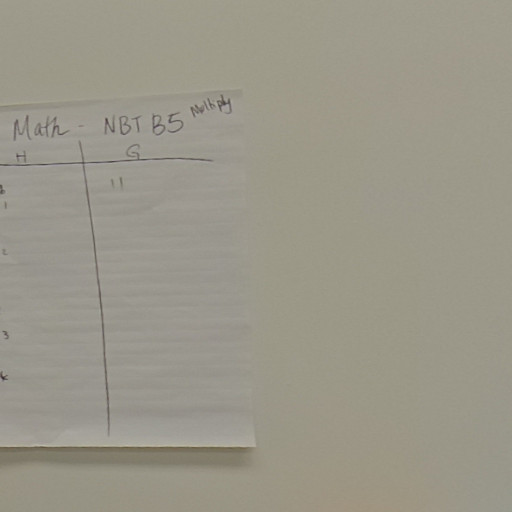 Math - NBT B5 Multiply
H G
11
1
2
3